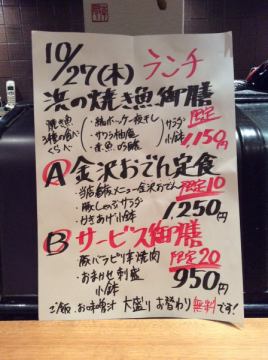 10/27(木) ランチ
浜の焼き魚御膳
焼き魚 3種の食べくらべ
・縞ホッケ一夜干し
・サワラ柚庵
・赤魚
サラダ
小鉢
限定
1,150円
A 金沢おでん定食
・当店看板メニュー金沢おでん
・豚しゃぶサラダ
・かきあげ 小鉢
限定10
1,250円
B サービス御膳
・豚バラピリ辛焼肉
・おまかせ刺盛
小鉢
限定20
950円
ご飯、お味噌汁 大盛り お替わり 無料です!